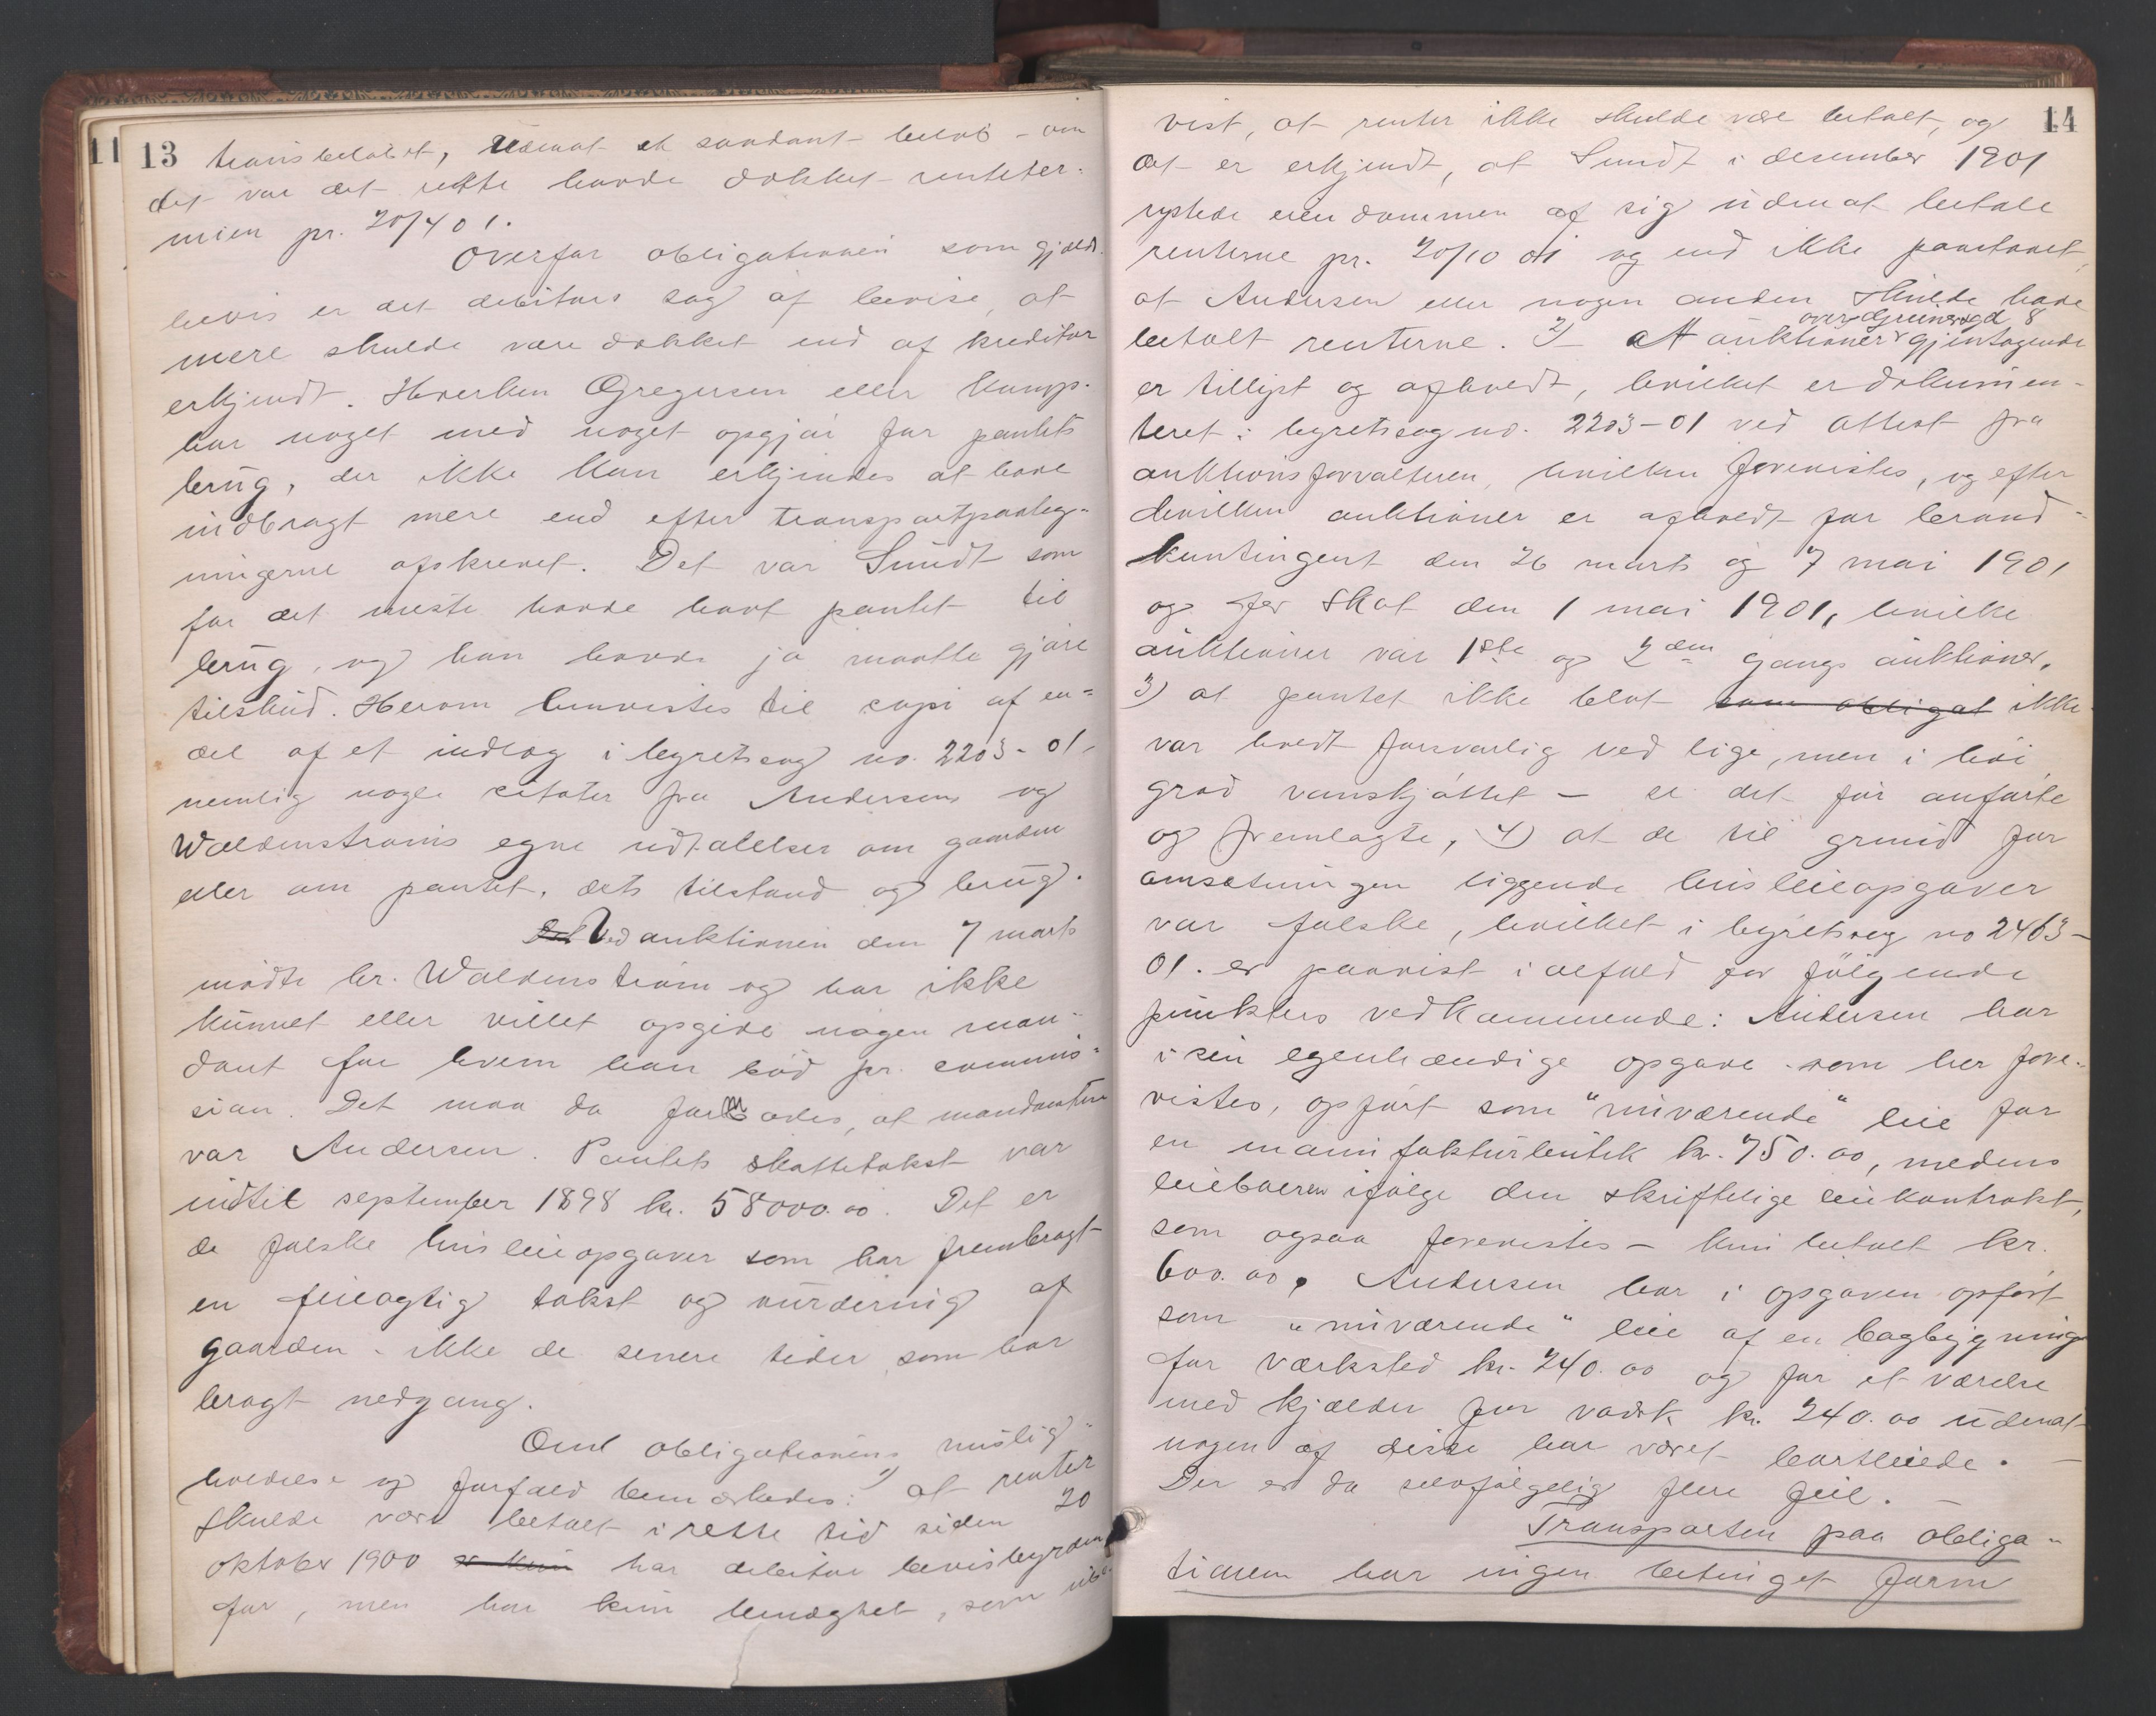 11
13
transbeløbet, udenat et saadant beløb - om
det var det rette havde dækket renteter-
minen pr. 20/4 01.
Overfor obligationen som gjælds-
bevis er det debitors sag af bevise, at
mere skulde være dækket end af kreditor
erkjendt. Hverken Gregersen eller Komp.
har noget med noget opgjør for pantets
brug, der ikke kan erkjendes at have
indbragt mere end efter transportpaateg-
ningerne afskrevet. Det var Sundt som
for det meste havde havt pantet til
brug, og han havde jo maatte gjøre
tilskud. Herom henvistes til copi af en=
del af et indlæg i byretssag no. 2203-01,
nemlig nogle citater fra Andersens og
Waldenstrøms egne udtalelser om gaarden
eller om pantet, dets tilstand og brug.
Det Ved auktionen den 7 marts
mødte hr. Waldenstrøm og har ikke
kunnet eller villet opgive nogen man-
dant for hvem han bød pr. commis=
sion. Det maa da formodes, at mandanten
var Andersen. Pantets skattetakst var
indtil september 1898 kr. 58000.00. Det er
de falske husleieopgaver som har frembragt
en feilagtig takst og vurdering af
gaarden - ikke de senere tider som har
bragt nedgang.
Om obligationens mislig-
holdelse og forfald bemærkedes: 1) at renter
skulde være betalt i rette tid siden 20
oktober 1900 har debitor bevisbyrden
for, men har kun benægtet, som
14
vist, at renter ikke skulde være betalt, og
det er erkjendt, at Sundt i desember 1901
rystede eiendommen af sig udenat betale
renterne pr. 20/10 01 og end ikke paastaaet,
at Andersen eller nogen anden skulde have
over Grünersgd 8
betalt renterne. 2) - At auktioner gjentagende
er tillyst og afholdt, hvilket er dokumen-
teret i byretssag no. 2203-01 ved attest fra
auktionsforvalteren, hvilken forevistes, og efter
hvilken auktioner er afholdt for brand-
kontingent den 26 marts og 7 mai 1901
og for skat den 1 mai 1901, hvilke
auktioner var 1ste og 2den gangs auktioner.
3) at pantet ikke blot som obligat ikke
var holdt forsvarlig ved lige, men i høi
grad vanskjøttet - se det før anførte
og fremlagte, 4) at de til grund for
omsætningen liggende husleieopgaver
var falske, hvilket i byretssag no 2463-
01. er paavist i alfald for følgende
punkters vedkommende: Andersen har
i sin egenhændige opgave som her fore-
vistes, opført som "nuværende" leie for
en manufakturbutik kr. 750.00, medens
leieboeren ifølge den skriftelige leiekontrakt,
som ogsaa forevistes - kun betalt kr.
600.00. Andersen har i opgaven opført
som "nuværende" leie af en bagbygning
for værksted kr. 240.00 og for et værelse
med kjælder for vadsk kr. 240.00 udenat
nogen af disse har været bortleiede. -
Der er da selvfølgelig flere feil. -
Transporten paa obliga-
tionen har ingen betinget form